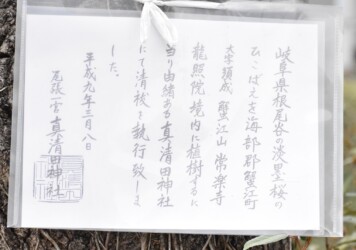 岐阜県根尾谷の淡墨桜の
ひこばえを海部郡蟹江町
大字須成 蟹江山 常楽寺
龍照院境内に植樹するに
当り由緒ある真清田神社
にて清祓を執行致しま
した。
平成九年三月八日
尾張一宮真清田神社